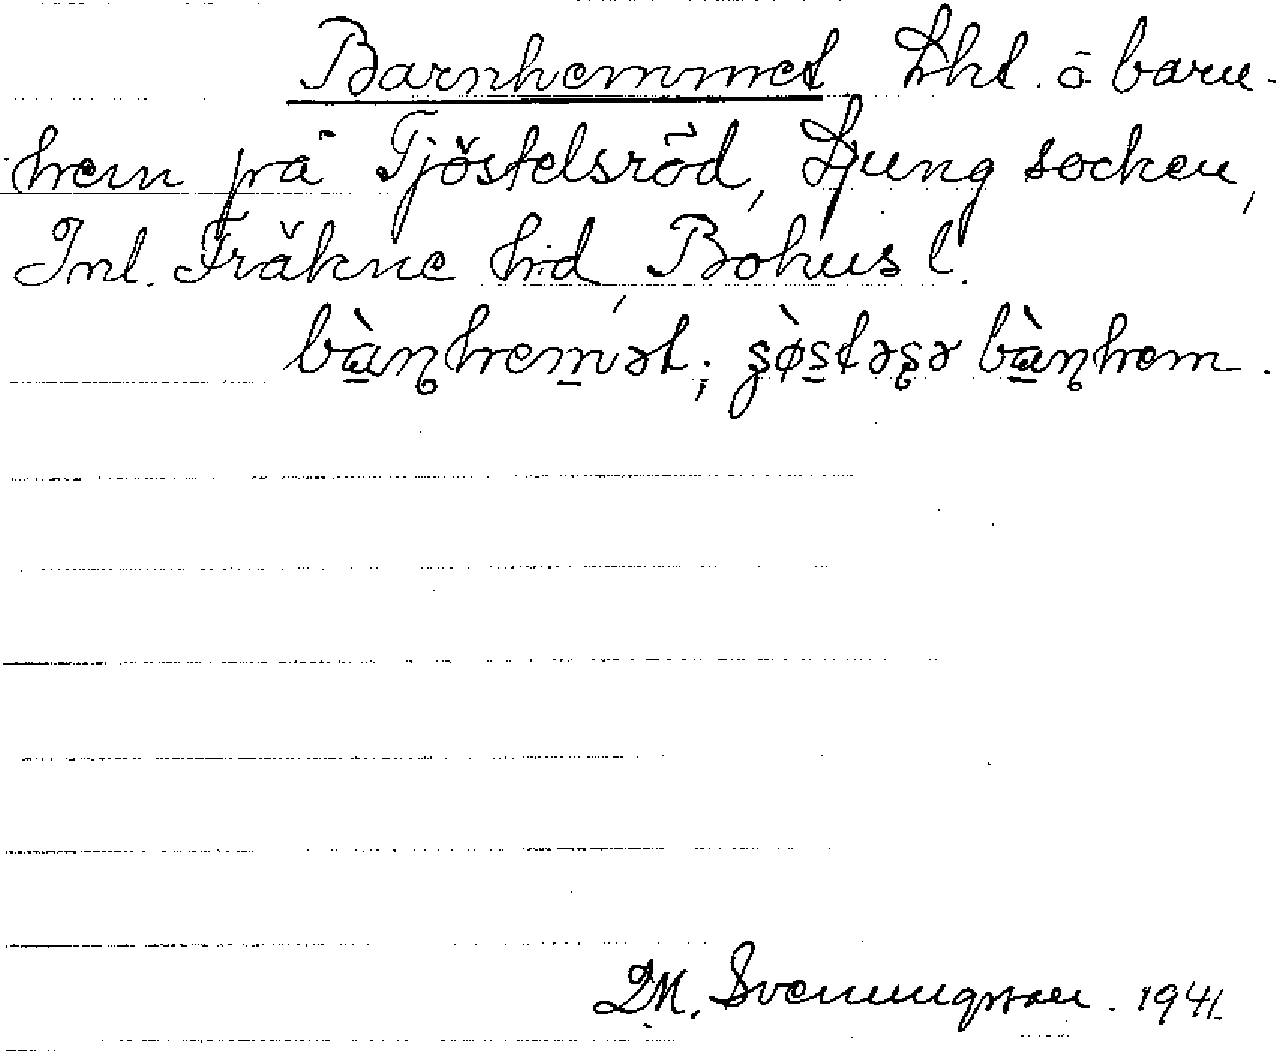 Barnhemmet Lht. å barn-
hem på Tjöstelsröd, Ljung socken,
Inl. Fräkne hd, Bohus l.
bàn̥hemət; ʂòstəʂə bàn̥hem.
M. Svenungsson. 1941